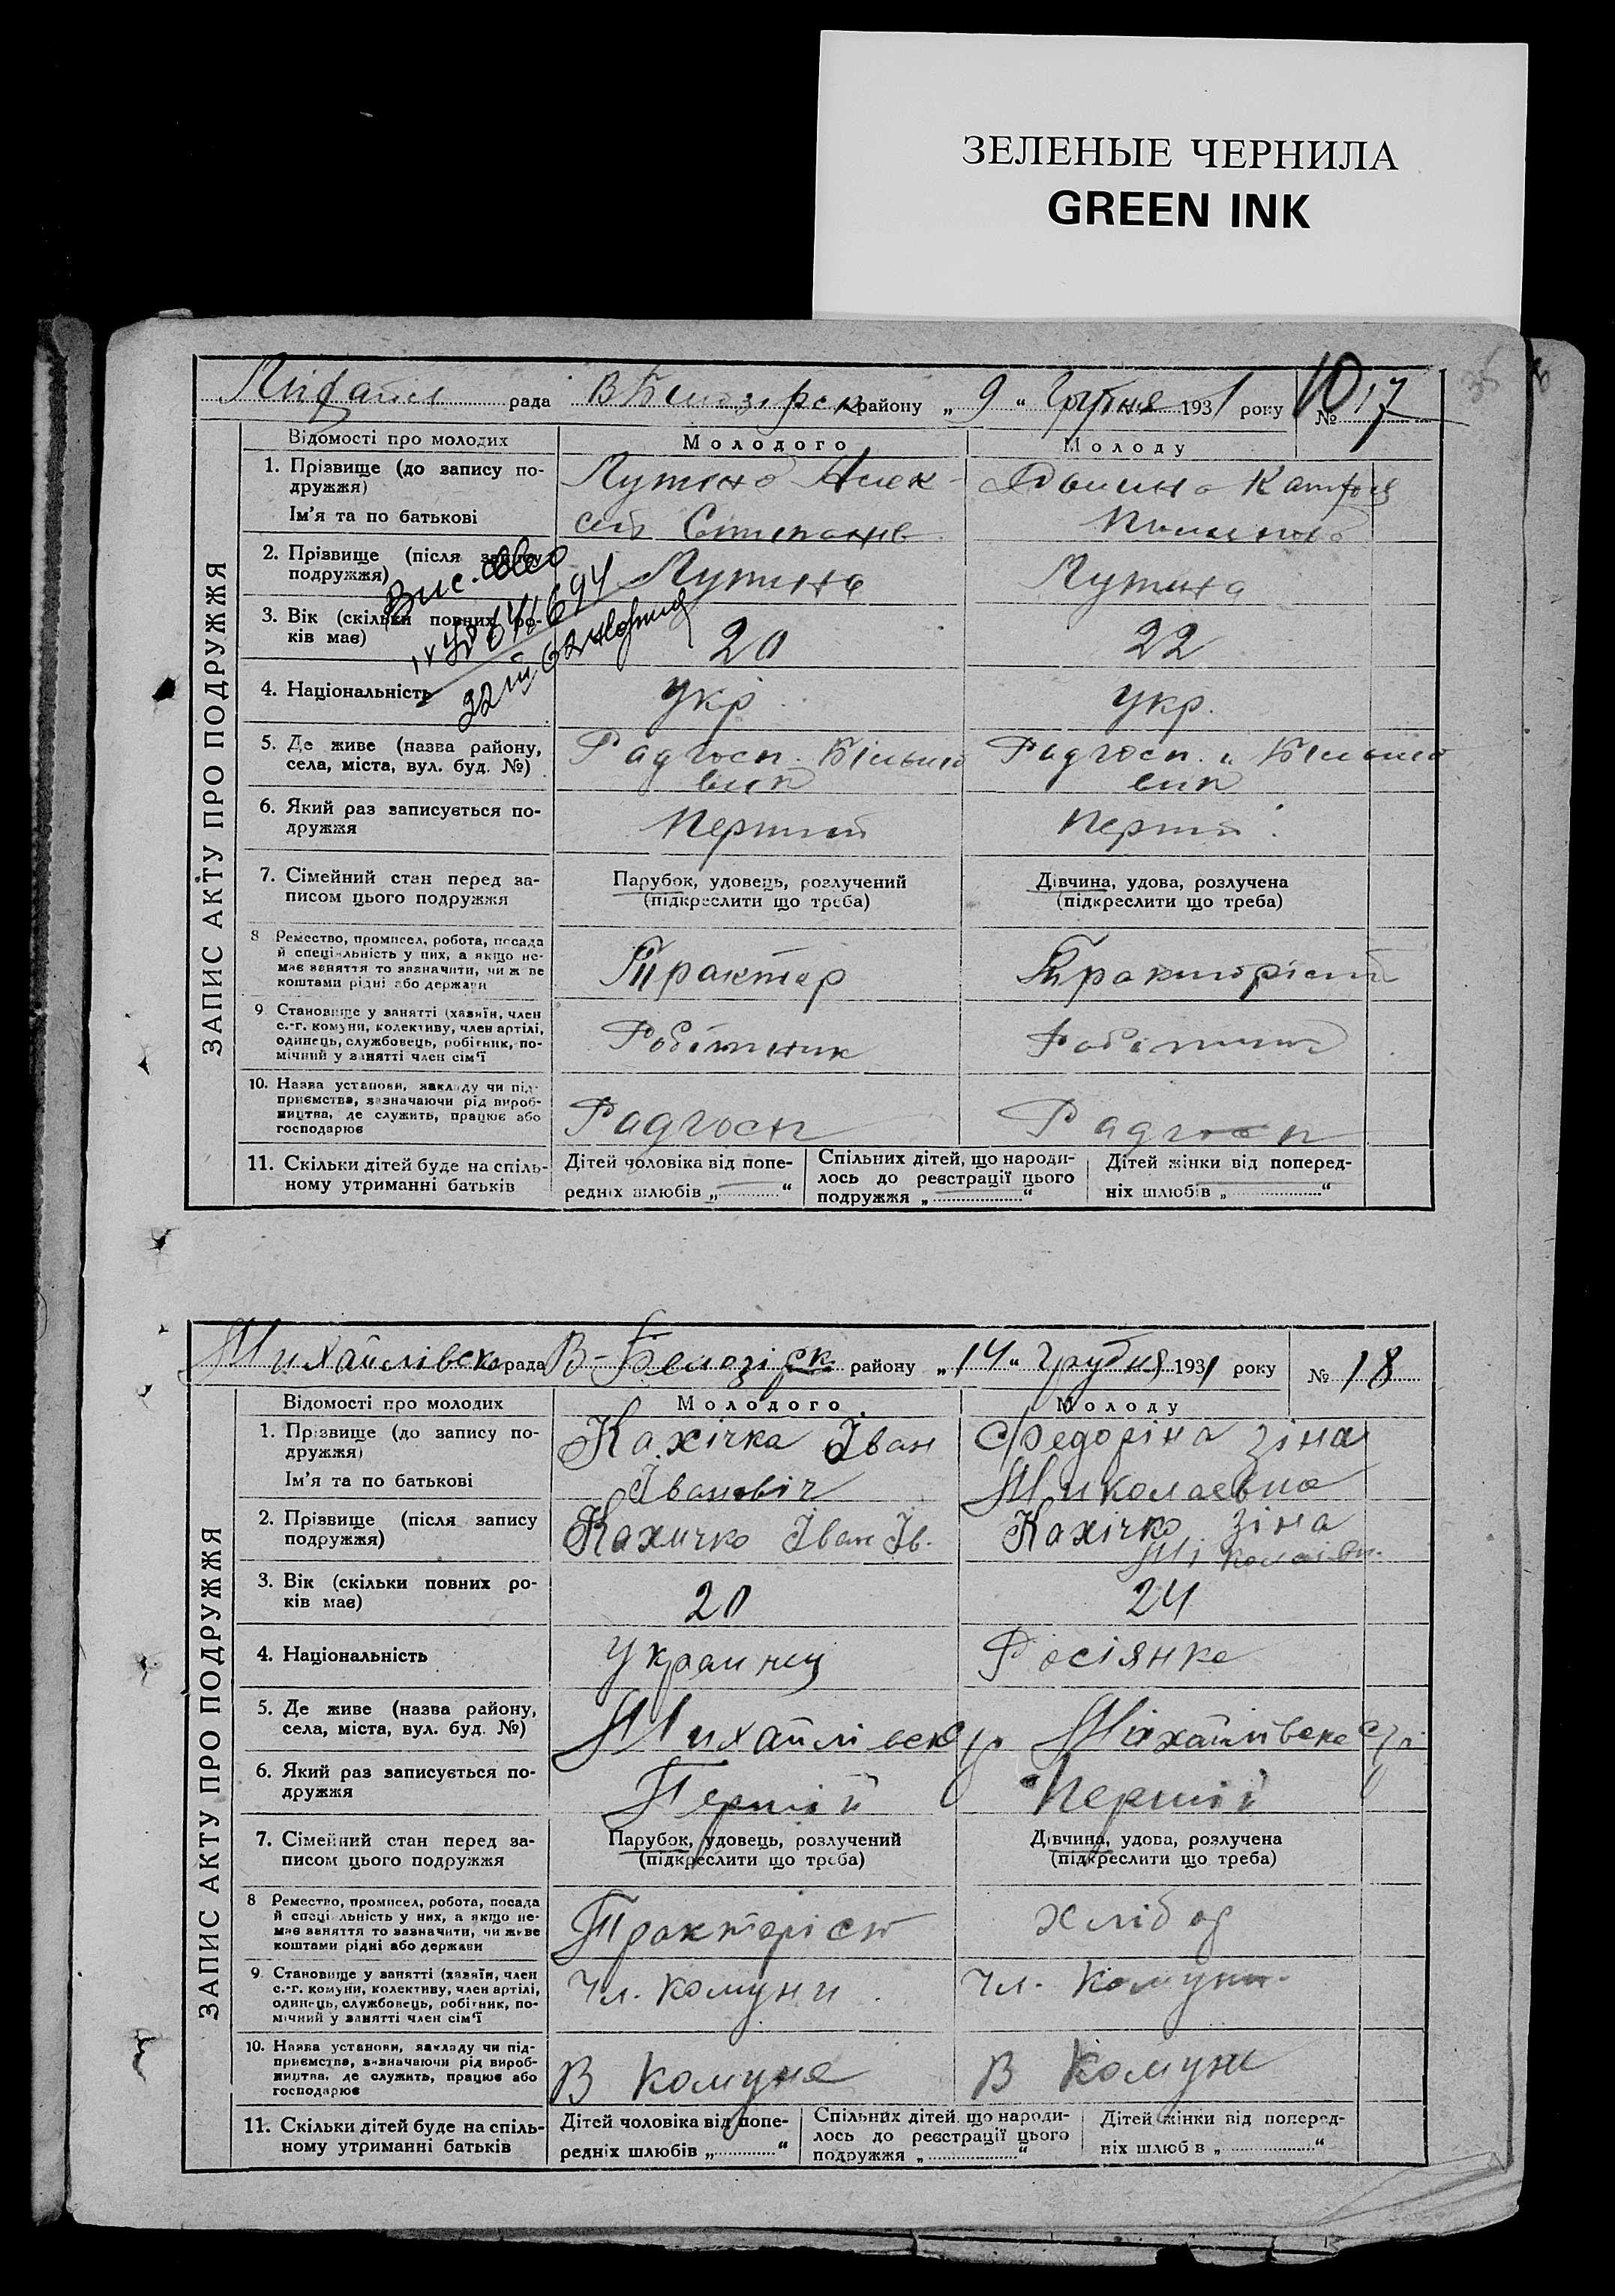 ЗЕЛЕНЫЕ ЧЕРНИЛА
GREEN INK
рада району „ 9 “ Грудня 1931 року № 17
ЗАПИС АКТУ ПРО ПОДРУЖЖЯ
Відомості про молодих
Молодого
Молоду
1. Прізвище (до запису по-
дружжя)
Ім'я та по батькові
2. Прізвище (після запису
подружжя)
3. Вік (скільки повних ро-
ків має)
20
22
4. Національність
Укр
Укр.
5. Де живе (назва району,
села, міста, вул. буд. №)
Радгосп. Більшо
вик
Радгосп. „ Більшо
вик
6. Який раз записується по-
дружжя
Перший
7. Сімейний стан перед за-
писом цього подружжя
Парубок, удовець, розлучений
(підкреслити що треба)
Дівчина, удова, розлучена
(підкреслити що треба)
8 Ремество, промисел, робота, посада
й спеціяльність у них, а якщо не-
має заняття то зазначити, чи живе
коштами рідні або держави
Трактор
Тракторіст
9 Становище у занятті (хазяїн, член
с.-г. комуни, колективу, член артілі,
одинець, службовець, робітник, по-
мічний у занятті член сім'ї
Робітник
10. Назва установи, закладу чи під-
приємства, зазначаючи рід вироб-
ництва, де служить, працює або
господарює
Радгосп
Радгосп
11. Скільки дітей буде на спіль-
ному утриманні батьків
Дітей чоловіка від попе-
редніх шлюбів „ “
Спільних дітей, що народи-
лось до реєстрації цього
подружжя „ “
Дітей жінки від поперед-
ніх шлюбів „ “
Михайлівска рада В-Белозірк району „ 14 “ грудня 1931 року № 18
ЗАПИС АКТУ ПРО ПОДРУЖЖЯ
Відомості про молодих
Молодого
Молоду
1. Прізвище (до запису по-
дружжя)
Ім'я та по батькові
Кахічка Іван
Івановіч
Федоріна Зіна
Миколаевна
2. Прізвище (після запису
подружжя)
Кахичко Іван Ів.
Кахічко Зіна
3. Вік (скільки повних ро-
ків має)
20
24
4. Національність
Украинец
Росіянка
5. Де живе (назва району,
села, міста, вул. буд. №)
6. Який раз записується по-
дружжя
Першій
Першій
7. Сімейний стан перед за-
писом цього подружжя
Парубок, удовець, розлучений
(підкреслити що треба)
Дівчина, удова, розлучена
(підкреслити що треба)
8 Ремество, промисел, робота, посада
й спеціяльність у них, а якщо не-
має заняття то зазначити, чи живе
коштами рідні або держави
Тракторіст
хлібор
9. Становище у занятті (хазяїн, член
с.-г. комуни, колективу, член артілі,
одинець, службовець, робітник, по-
мічний у занятті член сім'ї
Чл. Комуни
Чл. Комуни
10. Назва установи, закладу чи під-
приємства, зазначаючи рід вироб-
ництва, де служить, працює або
господарює
В Комуне
В Комуні
11. Скільки дітей буде на спіль-
ному утриманні батьків
Дітей чоловіка від попе-
редніх шлюбів „ “
Спільних дітей, що народи-
лось до реєстрації цього
подружжя „ “
Дітей жінки від поперед-
ніх шлюбів „ “